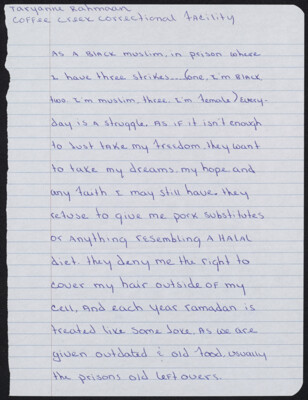 Taryanne Rahmaan
Coffee Creek Correctional Facility
As a Black muslim, in prison where
I have three strikes...(one, I'm Black
two, I'm muslim, three, I'm female) every-
day is a struggle. As if it isn't enough
to Just take my freedom, they want
to take my dreams, my hope and
any faith I may still have. they
refuse to give me pork substitutes
or Anything resembling A HALAL
diet. they deny me the right to
cover my hair outside of my
cell. And each year ramadan is
treated like some Joke. As we are
given outdated & old food, usually
the prisons old leftovers.